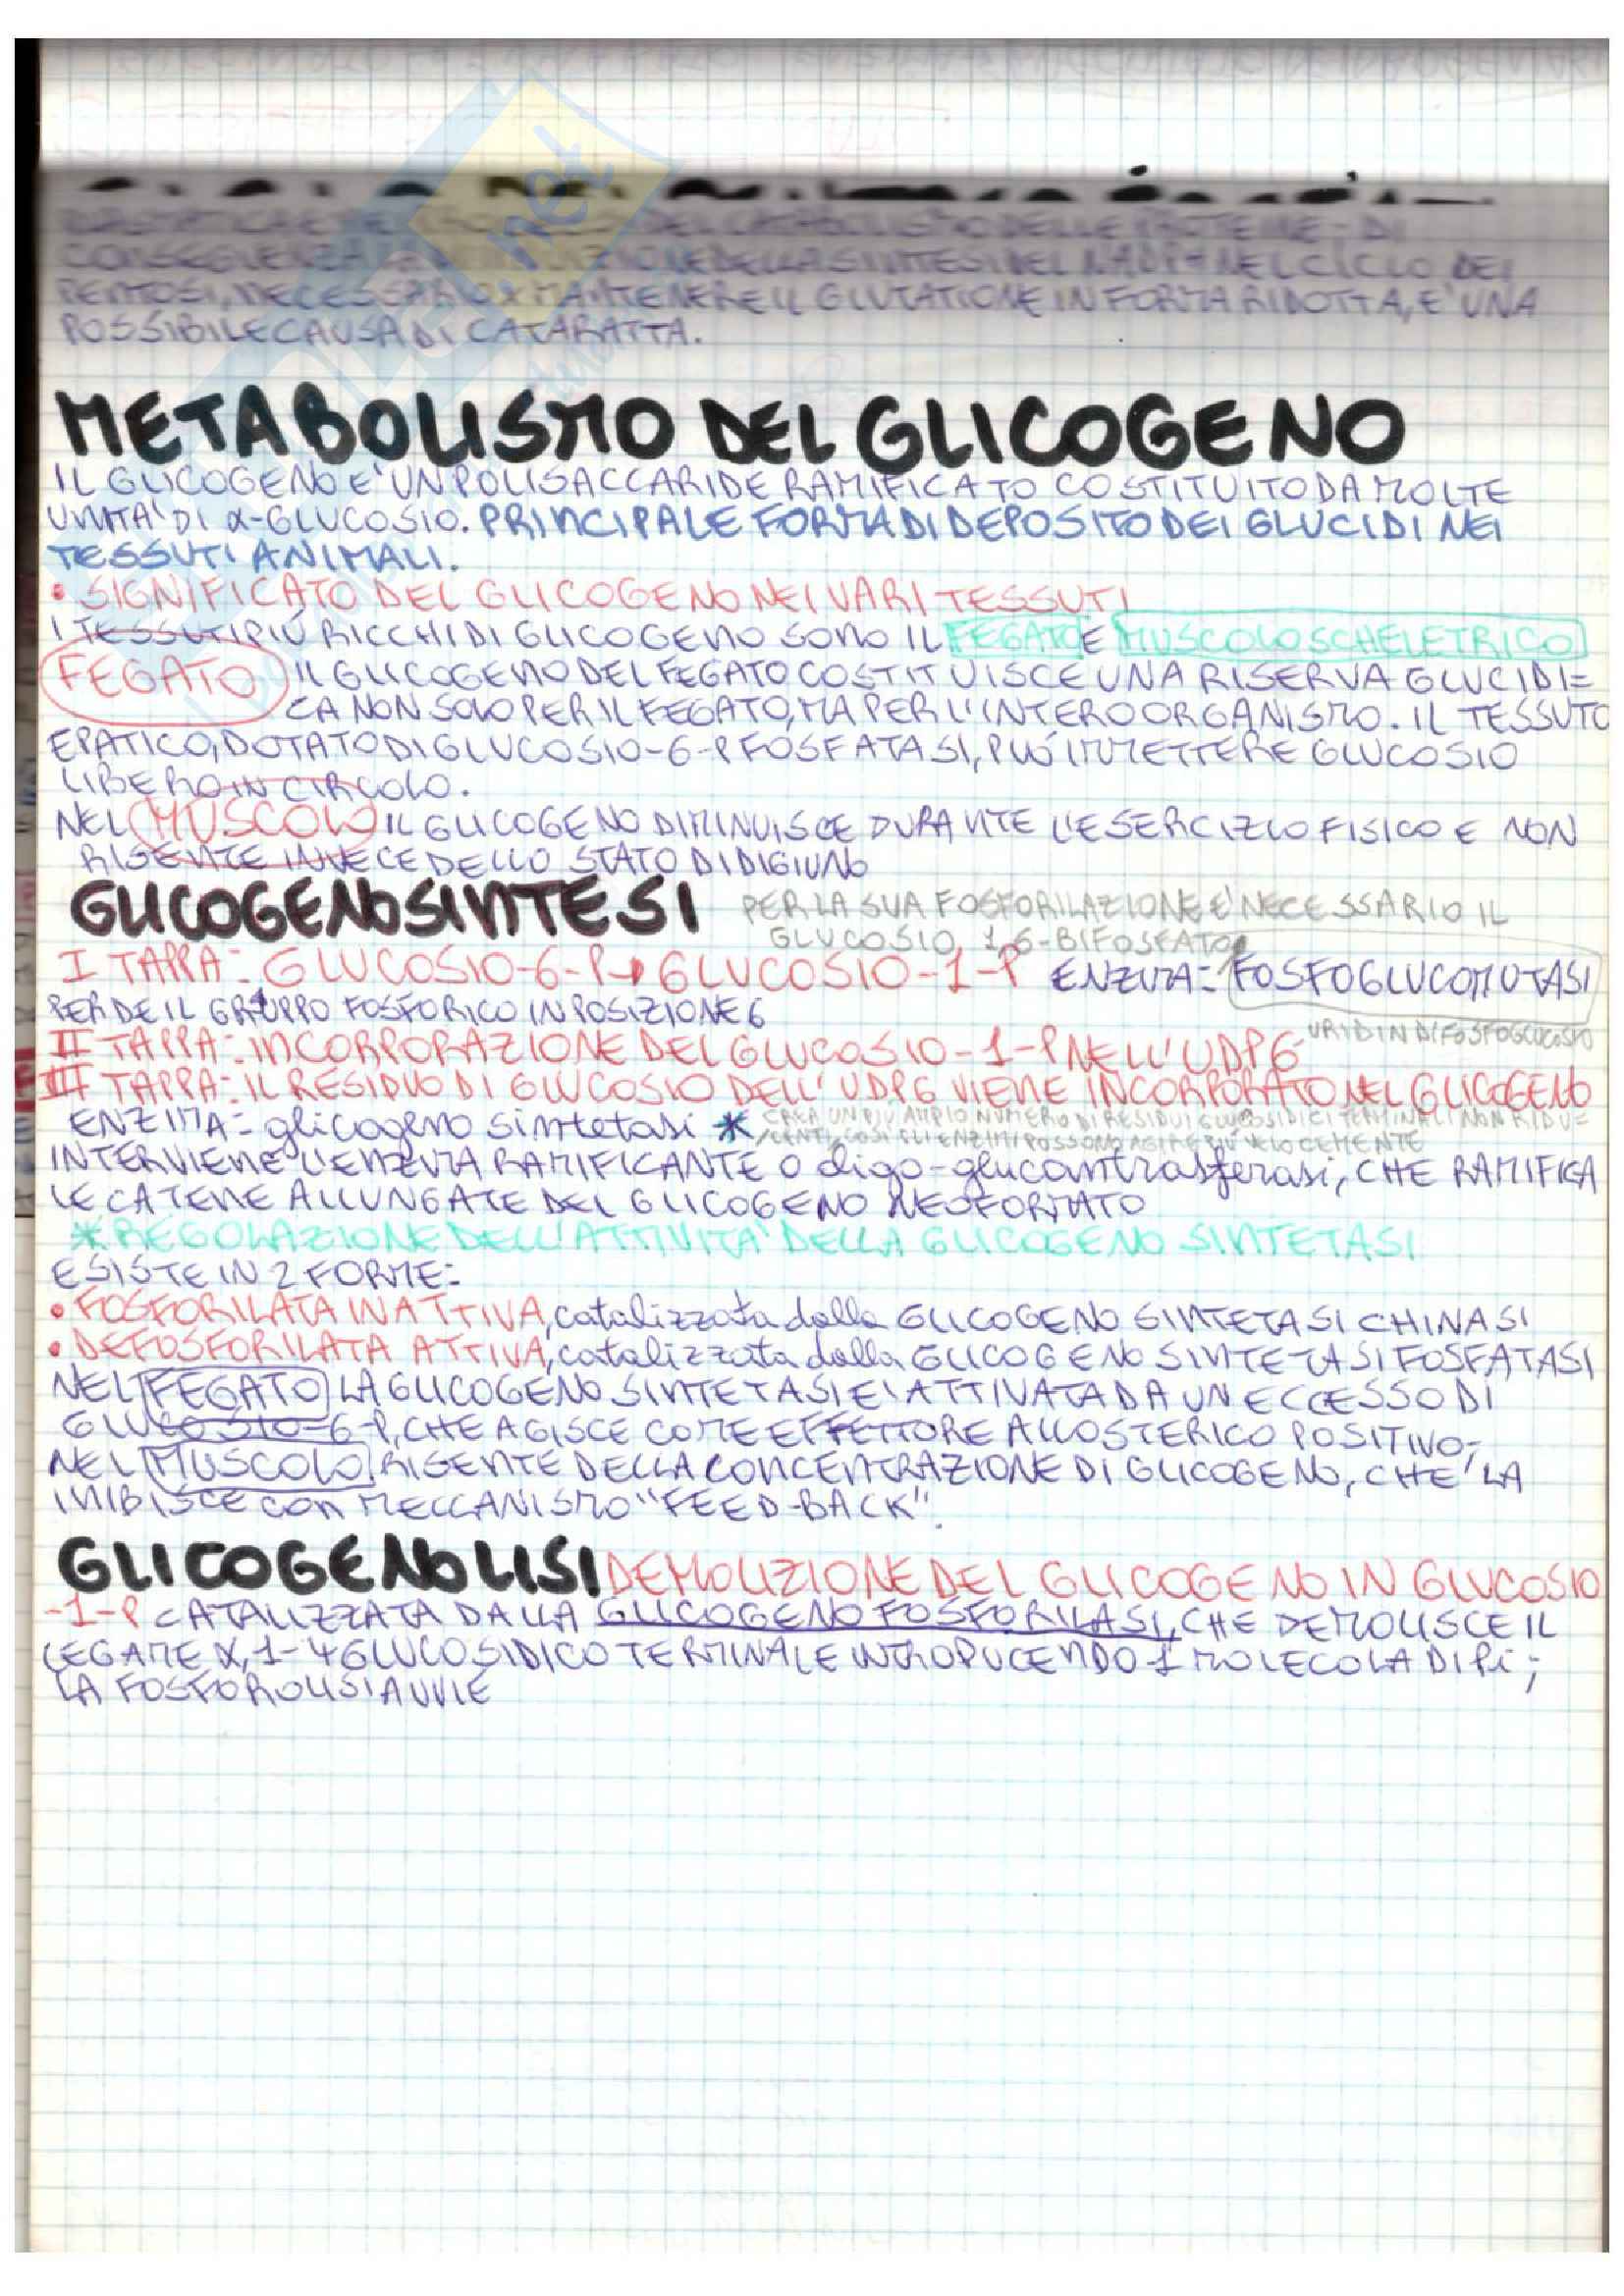 DEL CATABOLISMO DELLE PROTEINE. DI
CONSEGUENZA DELLA SINTESI DEL NADPH NEL CICLO DEI
PENTOSI, NECESSARIO X MANTENERE IL GLUTATIONE IN FORMA RIDOTTA, E' UNA
POSSIBILE CAUSA DI CATARATTA.
METABOLISMO DEL GLICOGENO
IL GLICOGENO E' UN POLISACCARIDE RAMIFICATO COSTITUITO DA MOLTE
UNITA' DI α-GLUCOSIO. PRINCIPALE FORMA DI DEPOSITO DEI GLUCIDI NEI
TESSUTI ANIMALI.
• SIGNIFICATO DEL GLICOGENO NEI VARI TESSUTI
I TESSUTI PIÙ RICCHI DI GLICOGENO SONO IL FEGATO E MUSCOLO SCHELETRICO
FEGATO IL GLICOGENO DEL FEGATO COSTITUISCE UNA RISERVA GLUCIDI=
CA NON SOLO PER IL FEGATO, MA PER L'INTERO ORGANISMO. IL TESSUTO
EPATICO, DOTATO DI GLUCOSIO-6-P FOSFATASI, PUÒ IMMETTERE GLUCOSIO
LIBERO IN CIRCOLO.
NEL MUSCOLO IL GLICOGENO DIMINUISCE DURANTE L'ESERCIZIO FISICO E NON
RISENTE INVECE DELLO STATO DI DIGIUNO
GLICOGENOSINTESI PER LA SUA FOSFORILAZIONE E' NECESSARIO IL
GLUCOSIO 1,6-BIFOSFATO
I TAPPA: GLUCOSIO-6-P → GLUCOSIO-1-P ENZIMA: FOSFOGLUCOMUTASI
PERDE IL GRUPPO FOSFORICO IN POSIZIONE 6
II TAPPA: INCORPORAZIONE DEL GLUCOSIO-1-P NELL'UDPG URIDINDIFOSFOGLUCOSIO
III TAPPA: IL RESIDUO DI GLUCOSIO DELL'UDPG VIENE INCORPORATO NEL GLICOGENO
ENZIMA: glicogeno sintetasi * CREA UN PIÙ AMPIO NUMERO DI RESIDUI GLUCOSIDICI TERMINALI NON RIDU=
CENTI, COSI GLI ENZIMI POSSONO AGIRE PIÙ VELOCEMENTE
INTERVIENE L'ENZIMA RAMIFICANTE O oligo-glucantrasferasi, CHE RAMIFICA
LE CATENE ALLUNGATE DEL GLICOGENO NEOFORMATO
* REGOLAZIONE DELL'ATTIVITA' DELLA GLICOGENO SINTETASI
ESISTE IN 2 FORME:
• FOSFORILATA INATTIVA, catalizzata dalla GLICOGENO SINTETASI CHINASI
• DEFOSFORILATA ATTIVA, catalizzata dalla GLICOGENO SINTETASI FOSFATASI
NEL FEGATO LA GLICOGENO SINTETASI E' ATTIVATA DA UN ECCESSO DI
GLUCOSIO-6-P, CHE AGISCE COME EFFETTORE ALLOSTERICO POSITIVO;
NEL MUSCOLO RISENTE DELLA CONCENTRAZIONE DI GLICOGENO, CHE LA
INIBISCE CON MECCANISMO "FEED-BACK".
GLICOGENOLISI DEMOLIZIONE DEL GLICOGENO IN GLUCOSIO
-1-P CATALIZZATA DALLA GLICOGENO FOSFORILASI, CHE DEMOLISCE IL
LEGAME α,1-4 GLUCOSIDICO TERMINALE INTRODUCENDO 1 MOLECOLA DI Pi;
LA FOSFOROLISI AVVIE